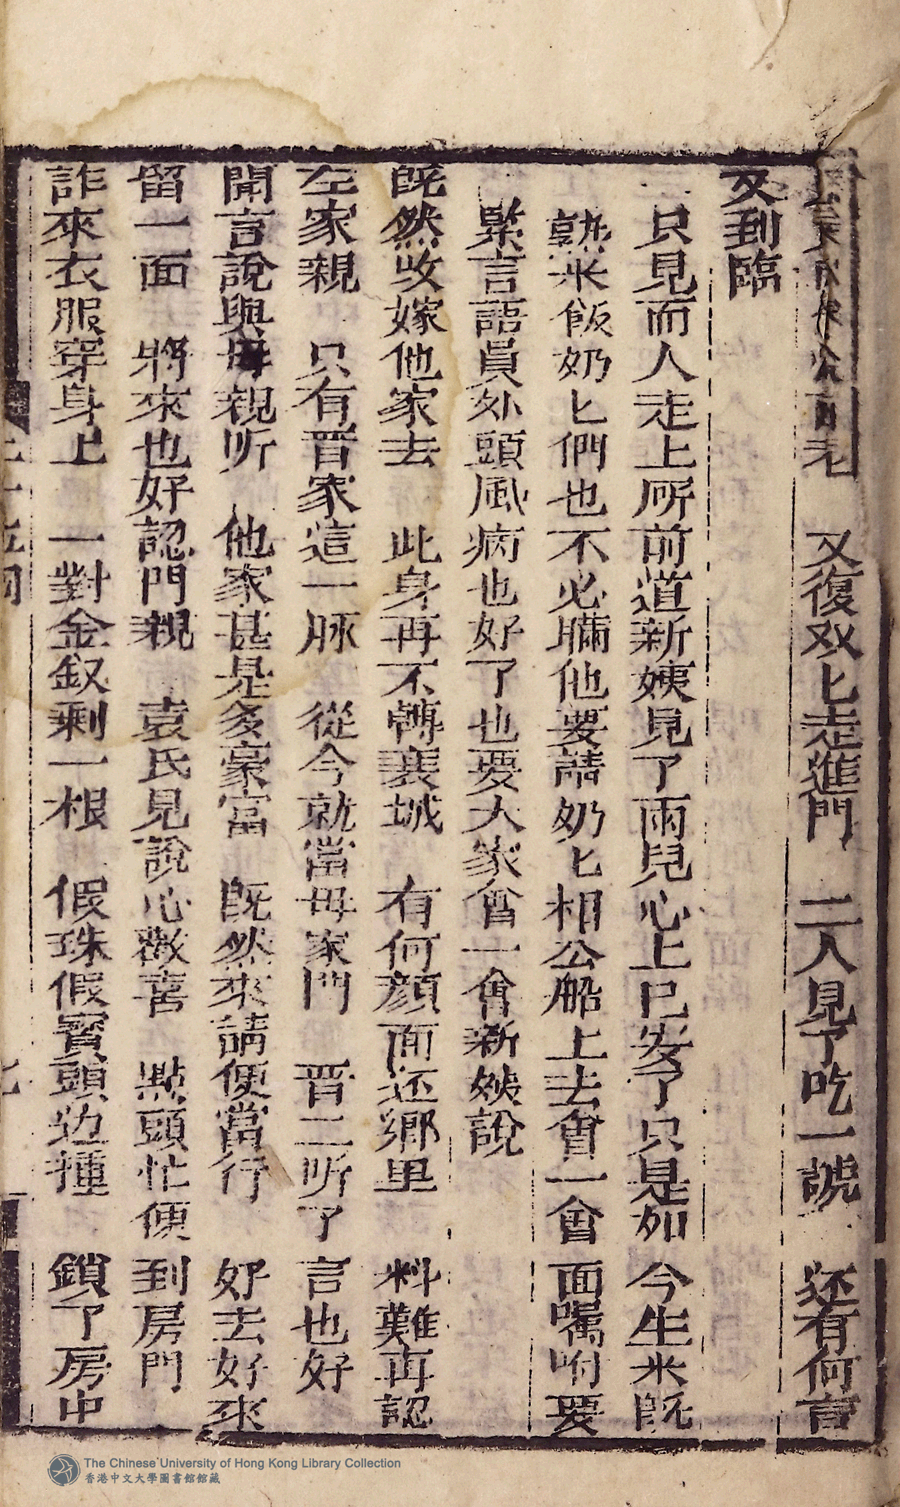 老 又復双匕走進門 二人見了吃一諕 还有何言
又到臨
只見而人走上所前道新姨見了兩兒心上已安了只是如今生米既
熟米飯奶匕們也不必瞞他要請奶匕相公船上去會一會面嘱咐要
緊言語員外頭風病也好了也要大家會一會新姨說
既然收嫁他家去 此身再不轉襄城 有何顏面还鄉里 料難再認
左家親 只有晋家這一脉 從今就當母家門 晋二听了言也好
開言說與母親听 他家甚是多豪富 既然來請便當行 好去好來
留一面 將來也好認門親 袁氏見說心歡喜 點頭忙便到房門
詐來衣服穿身上 一對金釵剩一根 假珠假寳頭边揰 鎖了房中
The Chinese University of Hong Kong Library Collection
香港中文大學圖書館館藏